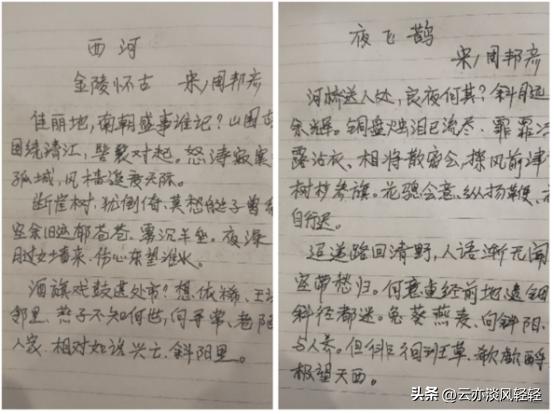 西河
金陵怀古 宋/周邦彦
佳丽地,南朝盛事谁记?山围故
国绕清江,髻鬟对起。怒涛寂寞
孤城,风樯遥度天际。
断崖树,犹倒倚,莫愁艇子曾系
空余旧迹郁苍苍,雾沉半垒。夜深
月过女墙来,伤心东望淮水。
酒旗戏鼓甚处市?想依稀、王谢
邻里。燕子不知何世,向寻常、巷陌
人家,相对如说兴亡,斜阳里。
夜飞鹊
宋/周邦彦
河桥送人处,良夜何其?斜月远
余辉。铜盘烛泪已流尽,霏霏凉
露沾衣。相将散密会,探风前津
树杪参旗。花骢会意,纵扬鞭、亦
自行迟。
迢递路回清野,人语渐无闻
空带愁归。何意重经前地,遗钿
斜径都迷。兔葵燕麦,向斜阳、
与人齐。但徘徊班草,欷歔酹
极望天西。
头条 @云亦淡风轻轻